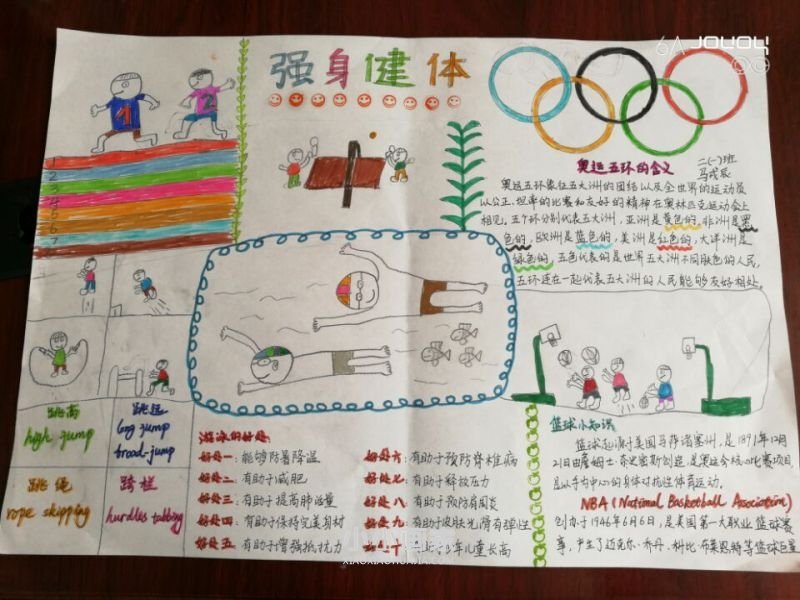 强身健体
1
2
2
3
4
5
6
7
奥运五环的含义
二(一)班
奥运五环象征五大洲的团结以及全世界的运动员
以公正、坦率的比赛和友好的精神在奥林匹克运动会上
相见。五个环分别代表五大洲,亚洲是黄色的,非洲是黑
色的,欧洲是蓝色的,美洲是红色的,大洋洲是
绿色的,五色代表的是世界五大洲不同肤色的人民,
五环连在一起代表五大洲的人民能够友好相处。
跳高
high jump
跳远
long jump
broad-jump
跳绳
rope skipping
跨栏
hurdles
游泳的好处
好处一:能够防暑降温
好处二:有助于减肥
好处三:有助于提高肺活量
好处四:有助于保持完美身材
好处五:有助于增强抵抗力
好处六:有助于预防脊椎病
好处七:有助于释放压力
好处八:有助于预防肩周炎
好处九:有助于皮肤光滑有弹性
好处十
儿童长高
篮球小知识
篮球起源于美国马萨诸塞州,是1891年12月
21日由詹姆士·奈史密斯创造,是奥运会核心比赛项目,
是以手为中心的身体对抗性体育运动。
NBA(National Basketball Association)
创办于1946年6月6日,是美国第一大职业篮球赛
事,产生了迈克尔·乔丹、科比·布莱恩特等篮球巨星